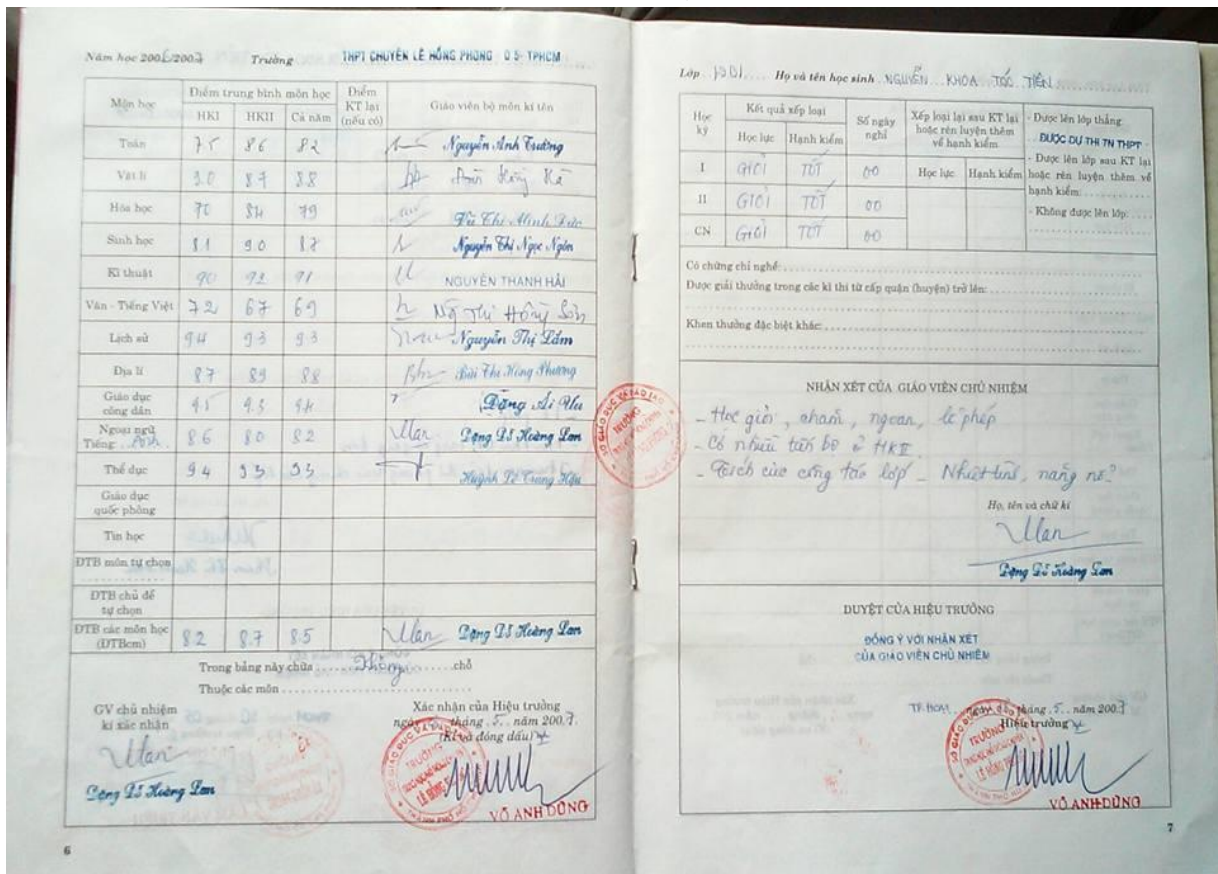 Năm học 2006/2007 Trường THPT CHUYÊN LÊ HỒNG PHONG Q 5- TPHCM
Môn học Điểm trung bình môn học Điểm KT lại (nếu có) Giáo viên bộ môn kí tên
HKI HKII Cả năm
Toán 7.5 8.6 8.2 Nguyễn Anh Trường
Vật lí 9.0 8.7 8.8
Hóa học 7.0 8.4 7.9 Vũ Thị Minh Đức
Sinh học 8.1 9.0 8.7 Nguyễn Thị Ngọc Ngôn
Kĩ thuật 9.0 9.2 9.1 NGUYỄN THANH HẢI
Văn - Tiếng Việt 7.2 6.7 6.9
Lịch sử 9.4 9.3 9.3 Nguyễn Thị Lắm
Địa lí 8.7 8.9 8.8 Bùi Thị Hồng Phương
Giáo dục công dân 9.5 9.4 Đặng Ái
Ngoại ngữ
Tiếng Anh 8.6 8.0 8.2 Lan Đặng Đỗ Hoàng Lan
Thể dục 9.4 9.3 9.3 Huỳnh Lê Trung Hậu
Giáo dục quốc phòng
Tin học
ĐTB môn tự chọn
ĐTB chủ đề tự chọn
ĐTB các môn học (ĐTBcm) 8.2 8.7 8.5 Lan Đặng Đỗ Hoàng Lan
Trong bảng này chữa Không chỗ
Thuộc các môn
GV chủ nhiệm
kí xác nhận
Lan
Đặng Đỗ Hoàng Lan
Xác nhận của Hiệu trưởng
ngày tháng 5 năm 2007
(Kí và đóng dấu)
VÕ ANH DŨNG
6
Lớp Họ và tên học sinh NGUYỄN KHOA TÓC TIÊN
Học kỳ Kết quả xếp loại Số ngày nghỉ Xếp loại lại sau KT lại hoặc rèn luyện thêm về hạnh kiểm
Học lực Hạnh kiểm Học lực Hạnh kiểm
I GIỎI TỐT 00
II GIỎI TỐT 00
CN GIỎI TỐT 00
- Được lên lớp thẳng
ĐƯỢC DỰ THI TN THPT
- Được lên lớp sau KT lại
hoặc rèn luyện thêm về
hạnh kiểm:
- Không được lên lớp:
Có chứng chỉ nghề:
Được giải thưởng trong các kì thi từ cấp quận (huyện) trở lên:
Khen thưởng đặc biệt khác:
NHẬN XÉT CỦA GIÁO VIÊN CHỦ NHIỆM
- Học giỏi, chăm, ngoan, lễ phép
- Có nhiều tiến bộ ở HKII.
- Tích cực công tác lớp - Nhiệt tình, năng nổ
Họ, tên và chữ kí
Lan
Đặng Đỗ Hoàng Lan
DUYỆT CỦA HIỆU TRƯỞNG
ĐỒNG Ý VỚI NHẬN XÉT
CỦA GIÁO VIÊN CHỦ NHIỆM
TP. HCM, ngày tháng 5 năm 2007
Hiệu trưởng
VÕ ANH DŨNG
7